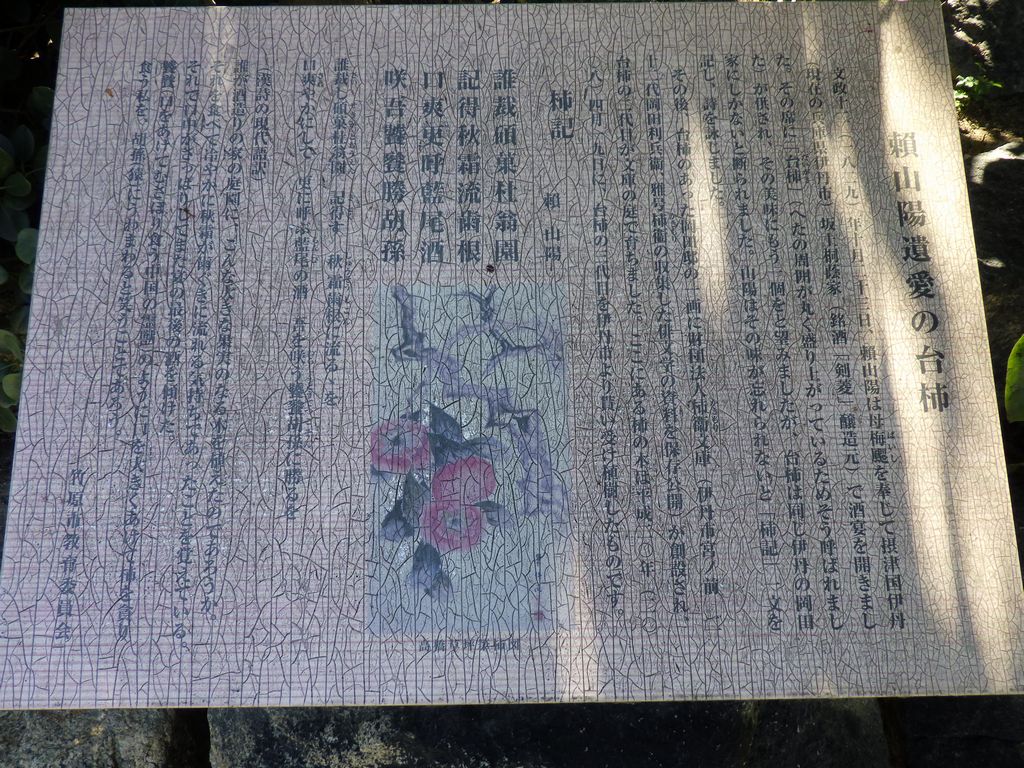 頼山陽遺愛の台柿
文政十二(一八二九)年十月二十三日、頼山陽は母梅颸を奉じて摂津国伊丹
(現在の兵庫県伊丹市)坂上桐陰家(銘酒「剣菱」醸造元)で酒宴を開きまし
た。その席に「台柿」(へたの周囲が丸く盛り上がっているためそう呼ばれまし
た)が供され、その美味にもう一個をと望みましたが、台柿は同じ伊丹の岡田
家にしかないと断られました。山陽はその味が忘れられないと「柿記」一文を
記し、詩を詠じました。
その後、台柿のあった岡田邸の一画に財団法人柿衞文庫(伊丹市宮ノ前
二代岡田利兵衞、雅号柿衞の収集した俳文学の資料を保存公開)が創設され、
台柿の三代目が文庫の庭で育ちました。ここにある柿の木は平成二〇年(二〇
〇八)四月一九日に、台柿の二代目を伊丹市より貰い受け植樹したものです。
柿記 頼 山陽
誰栽碩菓杜翁園
記得秋霜流歯根
口爽更呼藍尾酒
咲吾饕餮勝胡孫
誰か栽う碩菓杜翁の園 記得す 秋霜歯根に流るゝを
口爽やかにして 更に呼ぶ藍尾の酒 吾を咲う饕餮胡孫に勝るを
(漢詩の現代語訳)
誰が酒造りの家の庭園に、こんな大きな果実のなる木を植えたのであろうか。
それを食べて爽やかに秋霜が歯ぐきに流れる気持ちであったことを覚えている。
それで口中がさっぱりしてまた宴の最後の酒を傾けた。
饕餮(口をあけてむさぼり食う中国の怪獣)のように口を大きくあけて柿を貪り
食う私を、胡孫(猿)にもまさると笑うことであろう。
竹原市教育委員会
高橋草坪筆柿図